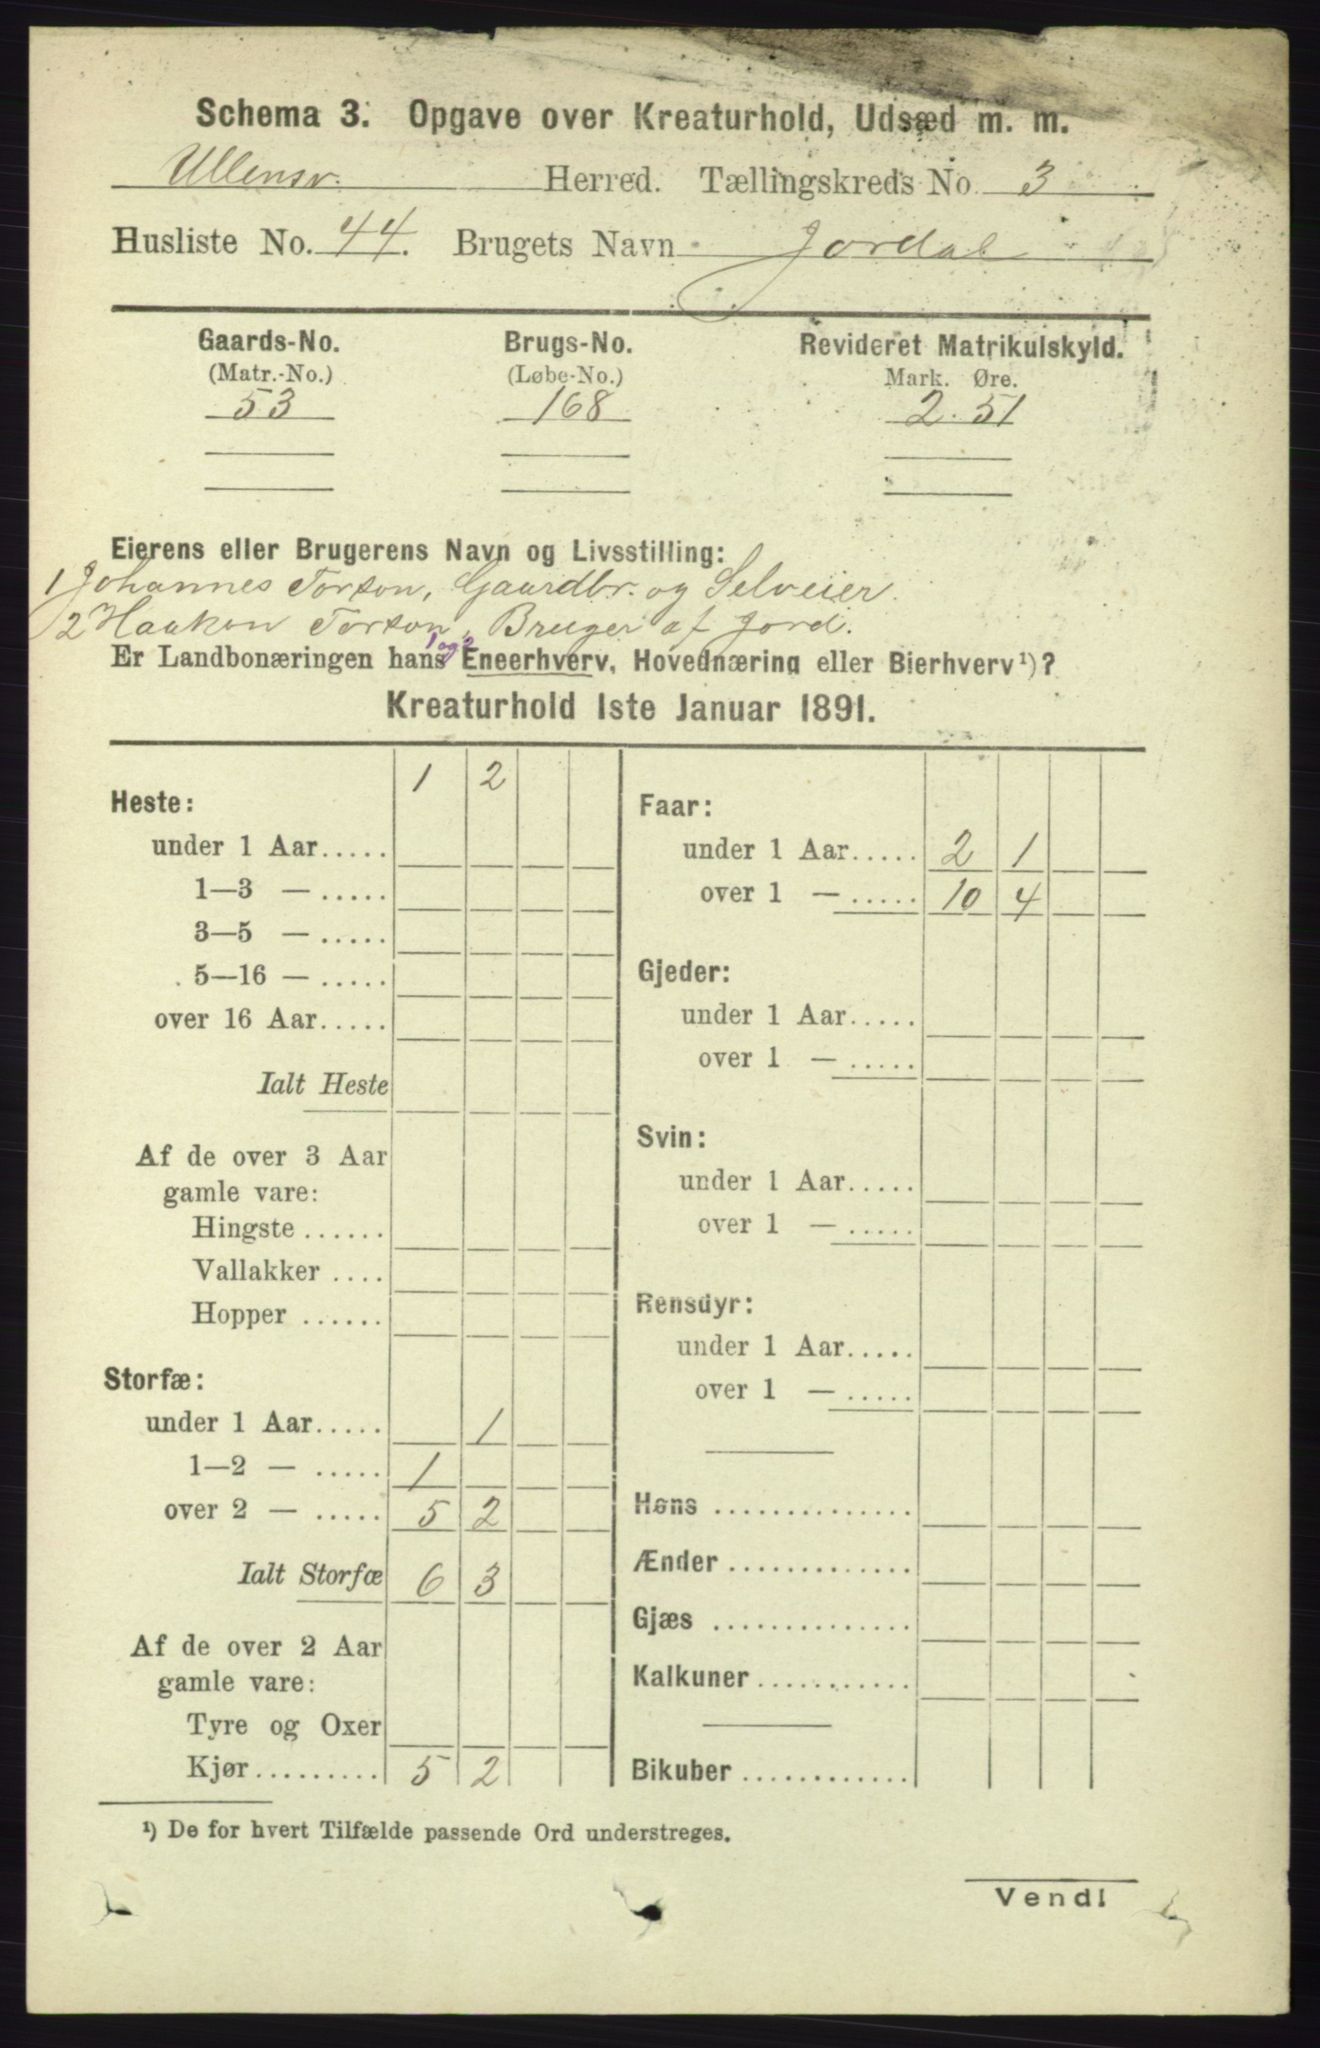 Schema 3. Opgave over Kreaturhold, Udsæd m. m.
Ullensv. Herred. Tællingskreds No. 3
Husliste No. 44. Brugets Navn Jordal
Gaards-No. Brugs-No. Revideret Matrikulskyld.
(Matr.-No.) (Løbe-No.) Mark. Øre.
53 168 2. 51
Eierens eller Brugerens Navn og Livsstilling:
1 Johannes Torson, Gaardbr. og Selveier.
2 Haakon Torson, Bruger af Jord.
1 og 2
Er Landbonæringen hans Eneerhverv, Hovednæring eller Bierhverv¹)?
Kreaturhold 1ste Januar 1891.
1 2
Heste:
under 1 Aar.....
1—3 — .....
3—5 — .....
5—16 — .....
over 16 Aar.....
Ialt Heste
Af de over 3 Aar
gamle vare:
Hingste ......
Vallakker ....
Hopper ......
Storfæ:
under 1 Aar..... 1
1—2 — ..... 1
over 2 — ..... 5 2
Ialt Storfæ 6 3
Af de over 2 Aar
gamle vare:
Tyre og Oxer
Kjør......... 5 2
Faar:
under 1 Aar..... 2 1
over 1 — ..... 10 4
Gjeder:
under 1 Aar.....
over 1 — .....
Svin:
under 1 Aar.....
over 1 — .....
Rensdyr:
under 1 Aar.....
over 1 — .....
Høns ..............
Ænder .............
Gjæs ..............
Kalkuner ...........
Bikuber ............
¹) De for hvert Tilfælde passende Ord understreges.
Vend!